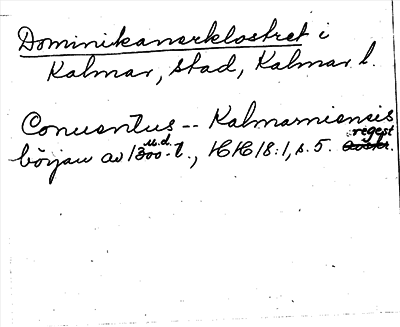 Dominikanerklostret i
Kalmar, stad, Kalmar l.
Conuentus -- Kalmarniensis
början av 1300-t. u.d., HH 18:1, s. 5. regest